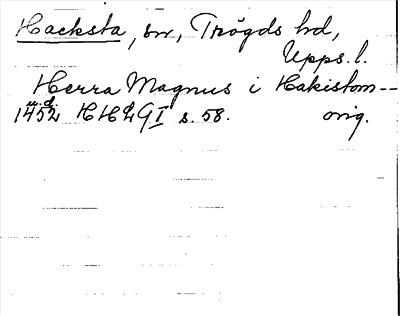 Hacksta, sn, Trögds hd,
Upps. l.
Herra Magnus i Hakistom--
u.d.
1452 HH2GI s. 58. orig.